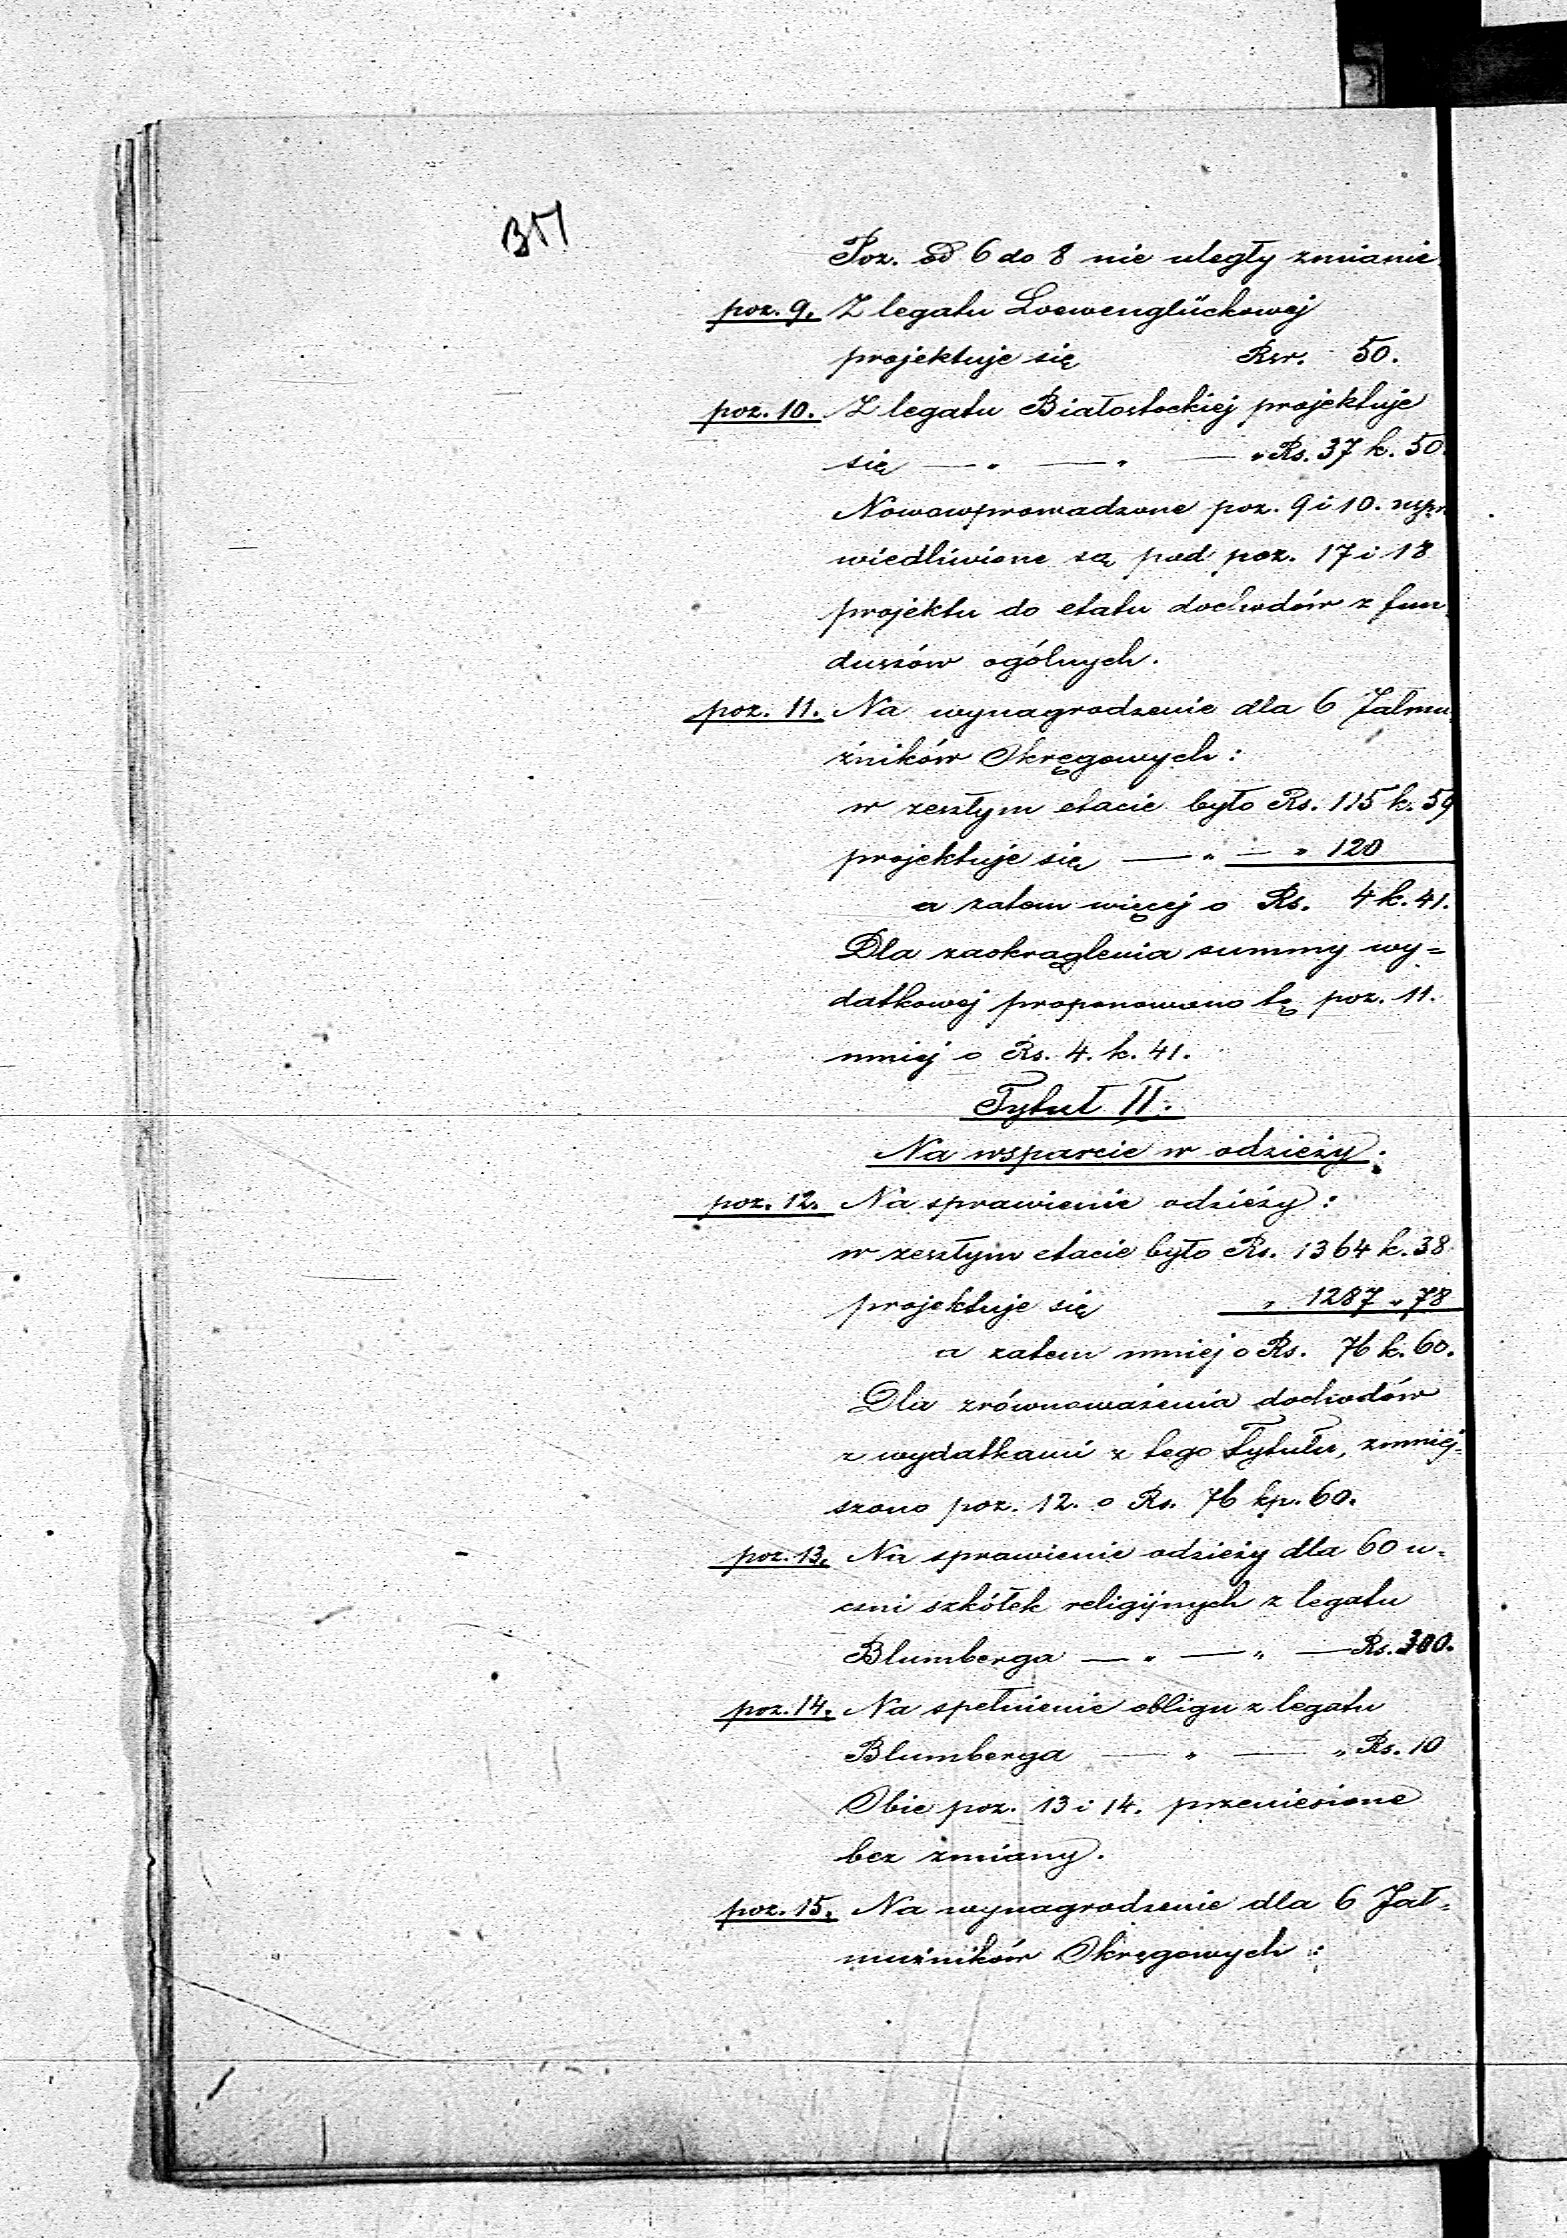 Poz. od 6 do 8 nie uległy zmianie.
poz. 9. Z legatu Loewenglückowej
projektuje się Rsr. 50.
poz. 10. Z legatu Białostockiej projektuje
się — „ — „ — „ Rs. 37 k. 50.
Nowowprowadzone poz. 9 i 10. uspra
wiedliwione są pod poz. 17 i 18
projektu do etatu dochodów z fun
duszów ogólnych.
poz. 11. Na wynagrodzenie dla 6 Jalmu
żników Okręgowych:
w zeszłym etacie było Rs. 115 k. 59
projektuje się — „ — „ 120
a zatem więcej o Rs. 4 k. 41.
Dla zaokrąglenia summy wy=
datkowej proponowano tę poz. 11.
mniej o Rs. 4. k. 41.
Tytuł II.
Na wsparcie w odzieży.
poz. 12. Na sprawienie odzieży:
w zeszłym etacie było Rs. 1364 k. 38
projektuje się „ 1287 „ 78
a zatem mniej o Rs. 76 k. 60.
Dla zrównoważenia dochodów
z wydatkami z tego Tytułu, zmniej=
szono poz. 12. o Rs. 76 kp. 60.
poz. 13. Na sprawienie odzieży dla 60 u=
czni szkółek religijnych z legatu
Blumberga — „ — „ — Rs. 300.
poz. 14. Na spełnienie obligu z legatu
Blumberga — „ — „ Rs. 10
Obie poz. 13 i 14. przeniesione
bez zmiany.
poz. 15. Na wynagrodzenie dla 6 Jał=
mużników Okręgowych: